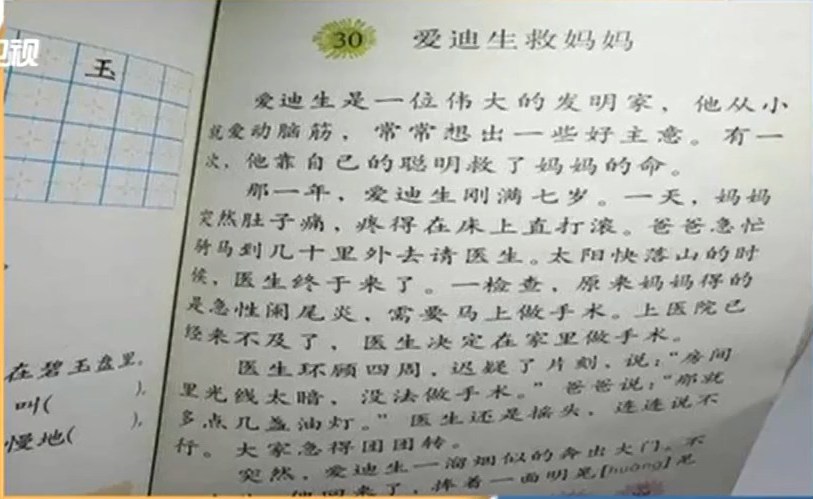 卫视
玉
在碧玉盘里,
叫(          ),
慢地(          ),
30 爱迪生救妈妈
爱迪生是一位伟大的发明家，他从小
就爱动脑筋，常常想出一些好主意。有一
次，他靠自己的聪明救了妈妈的命。
那一年，爱迪生刚满七岁。一天，妈妈
突然肚子痛，疼得在床上直打滚。爸爸急忙
骑马到几十里外去请医生。太阳快落山的时
候，医生终于来了。一检查，原来妈妈得的
是急性阑尾炎，需要马上做手术。上医院已
经来不及了，医生决定在家里做手术。
医生环顾四周，迟疑了片刻，说：“房间
里光线太暗，没法做手术。”爸爸说：“那就
多点几盏油灯。”医生还是摇头，连连说不
行。大家急得团团转。
突然，爱迪生一溜烟似的奔出大门。不
他回来了，捧着一面明晃[huǎng]晃